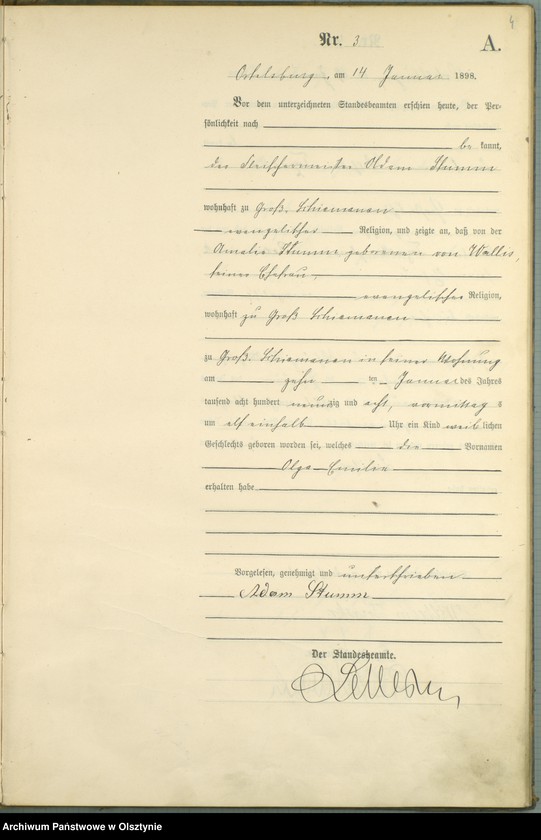 4
Nr. 3
A.
Ortelsburg, am 14 Januar 1898.
Vor dem unterzeichneten Standesbeamten erschien heute, der Per-
sönlichkeit nach
be kannt,
der Fleischermeister Adam Stumm
wohnhaft zu Groß Schiemanen
evangelischer Religion, und zeigte an, daß von der
Amalie Stumm geborenen von Wallis,
seiner Ehefrau,
evangelischer Religion,
wohnhaft zu Groß Schiemanen
zu Groß Schiemanen in seiner Wohnung
am zehn ten Januar des Jahres
tausend acht hundert neunzig und acht, vormittag s
um elf einhalb Uhr ein Kind weib lichen
Geschlechts geboren worden sei, welches die Vornamen
Olga Emilie
erhalten habe
Vorgelesen, genehmigt und unterschrieben
Adam Stumm
Der Standesbeamte.
Archiwum Państwowe w Olsztynie